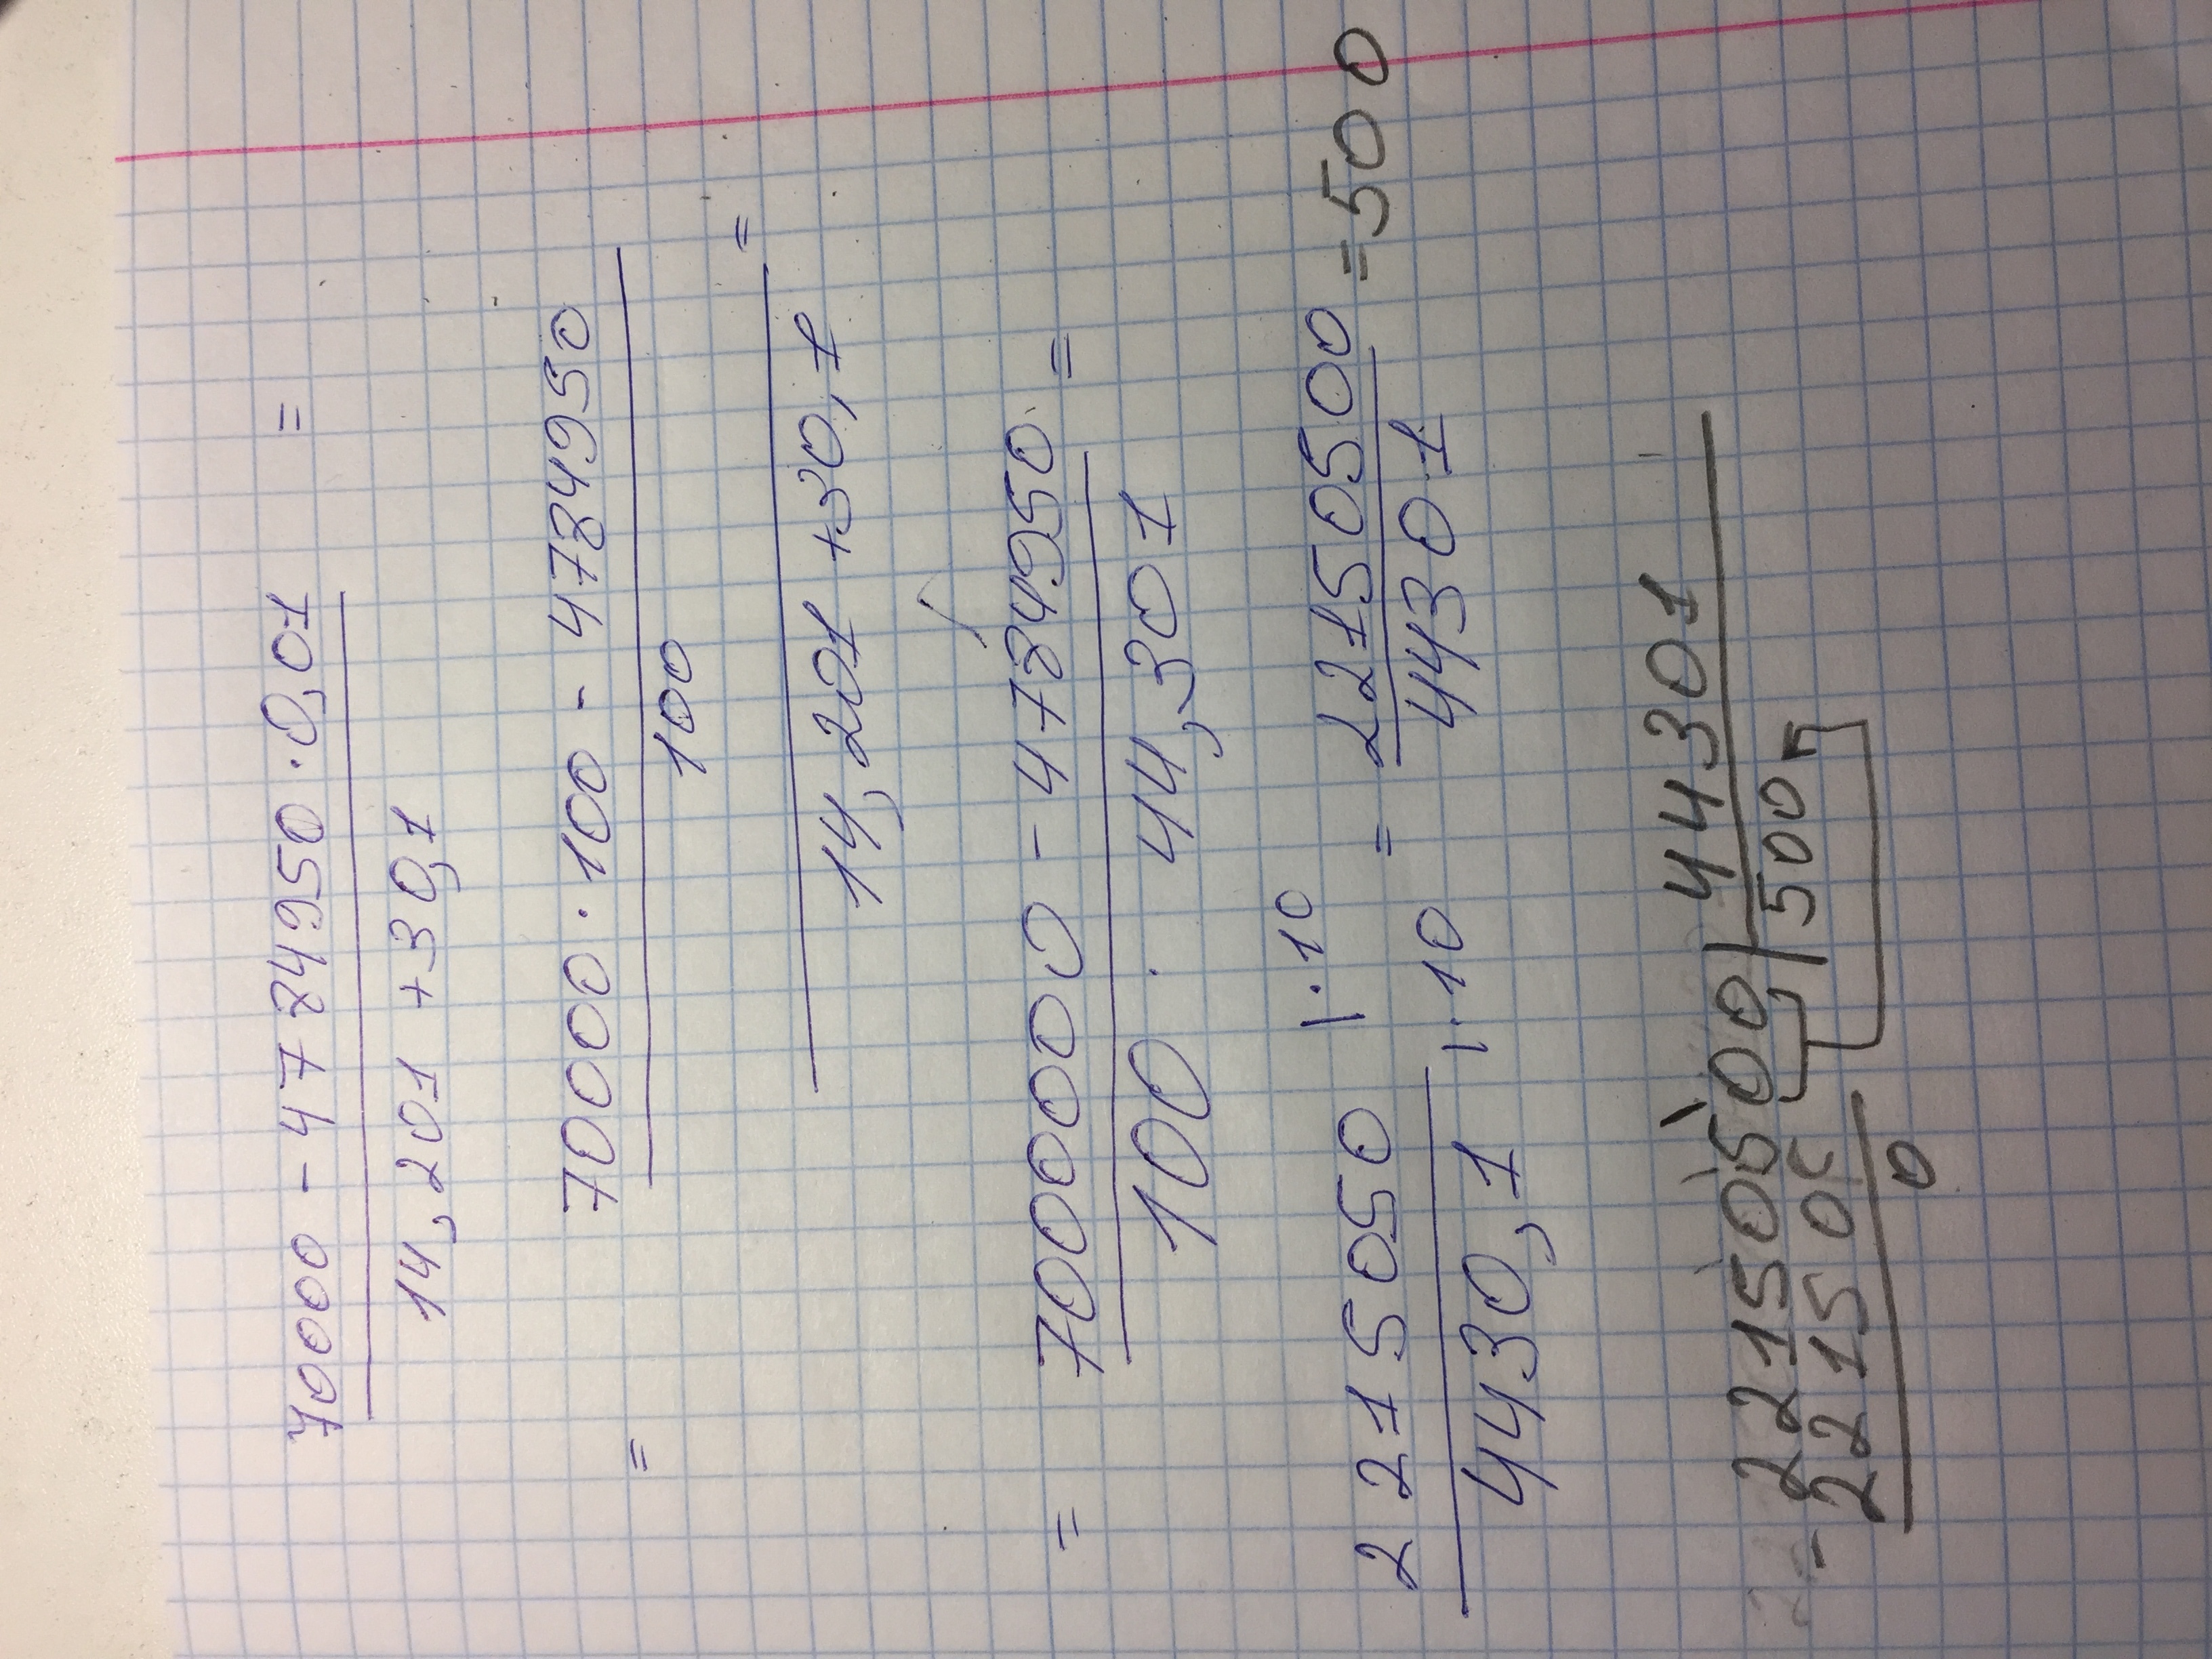 70000 - 4784950 · 0,01 =
14,201 + 30,1
= 70000 · 100 - 4784950
100
=
14,201 + 30,1
= 7000000 - 4784950 =
100 · 44,301
2215050 | · 10 = 22150500 = 500
4430,1 | · 10 44301
22150500 | 44301
- 221505 | 500
0